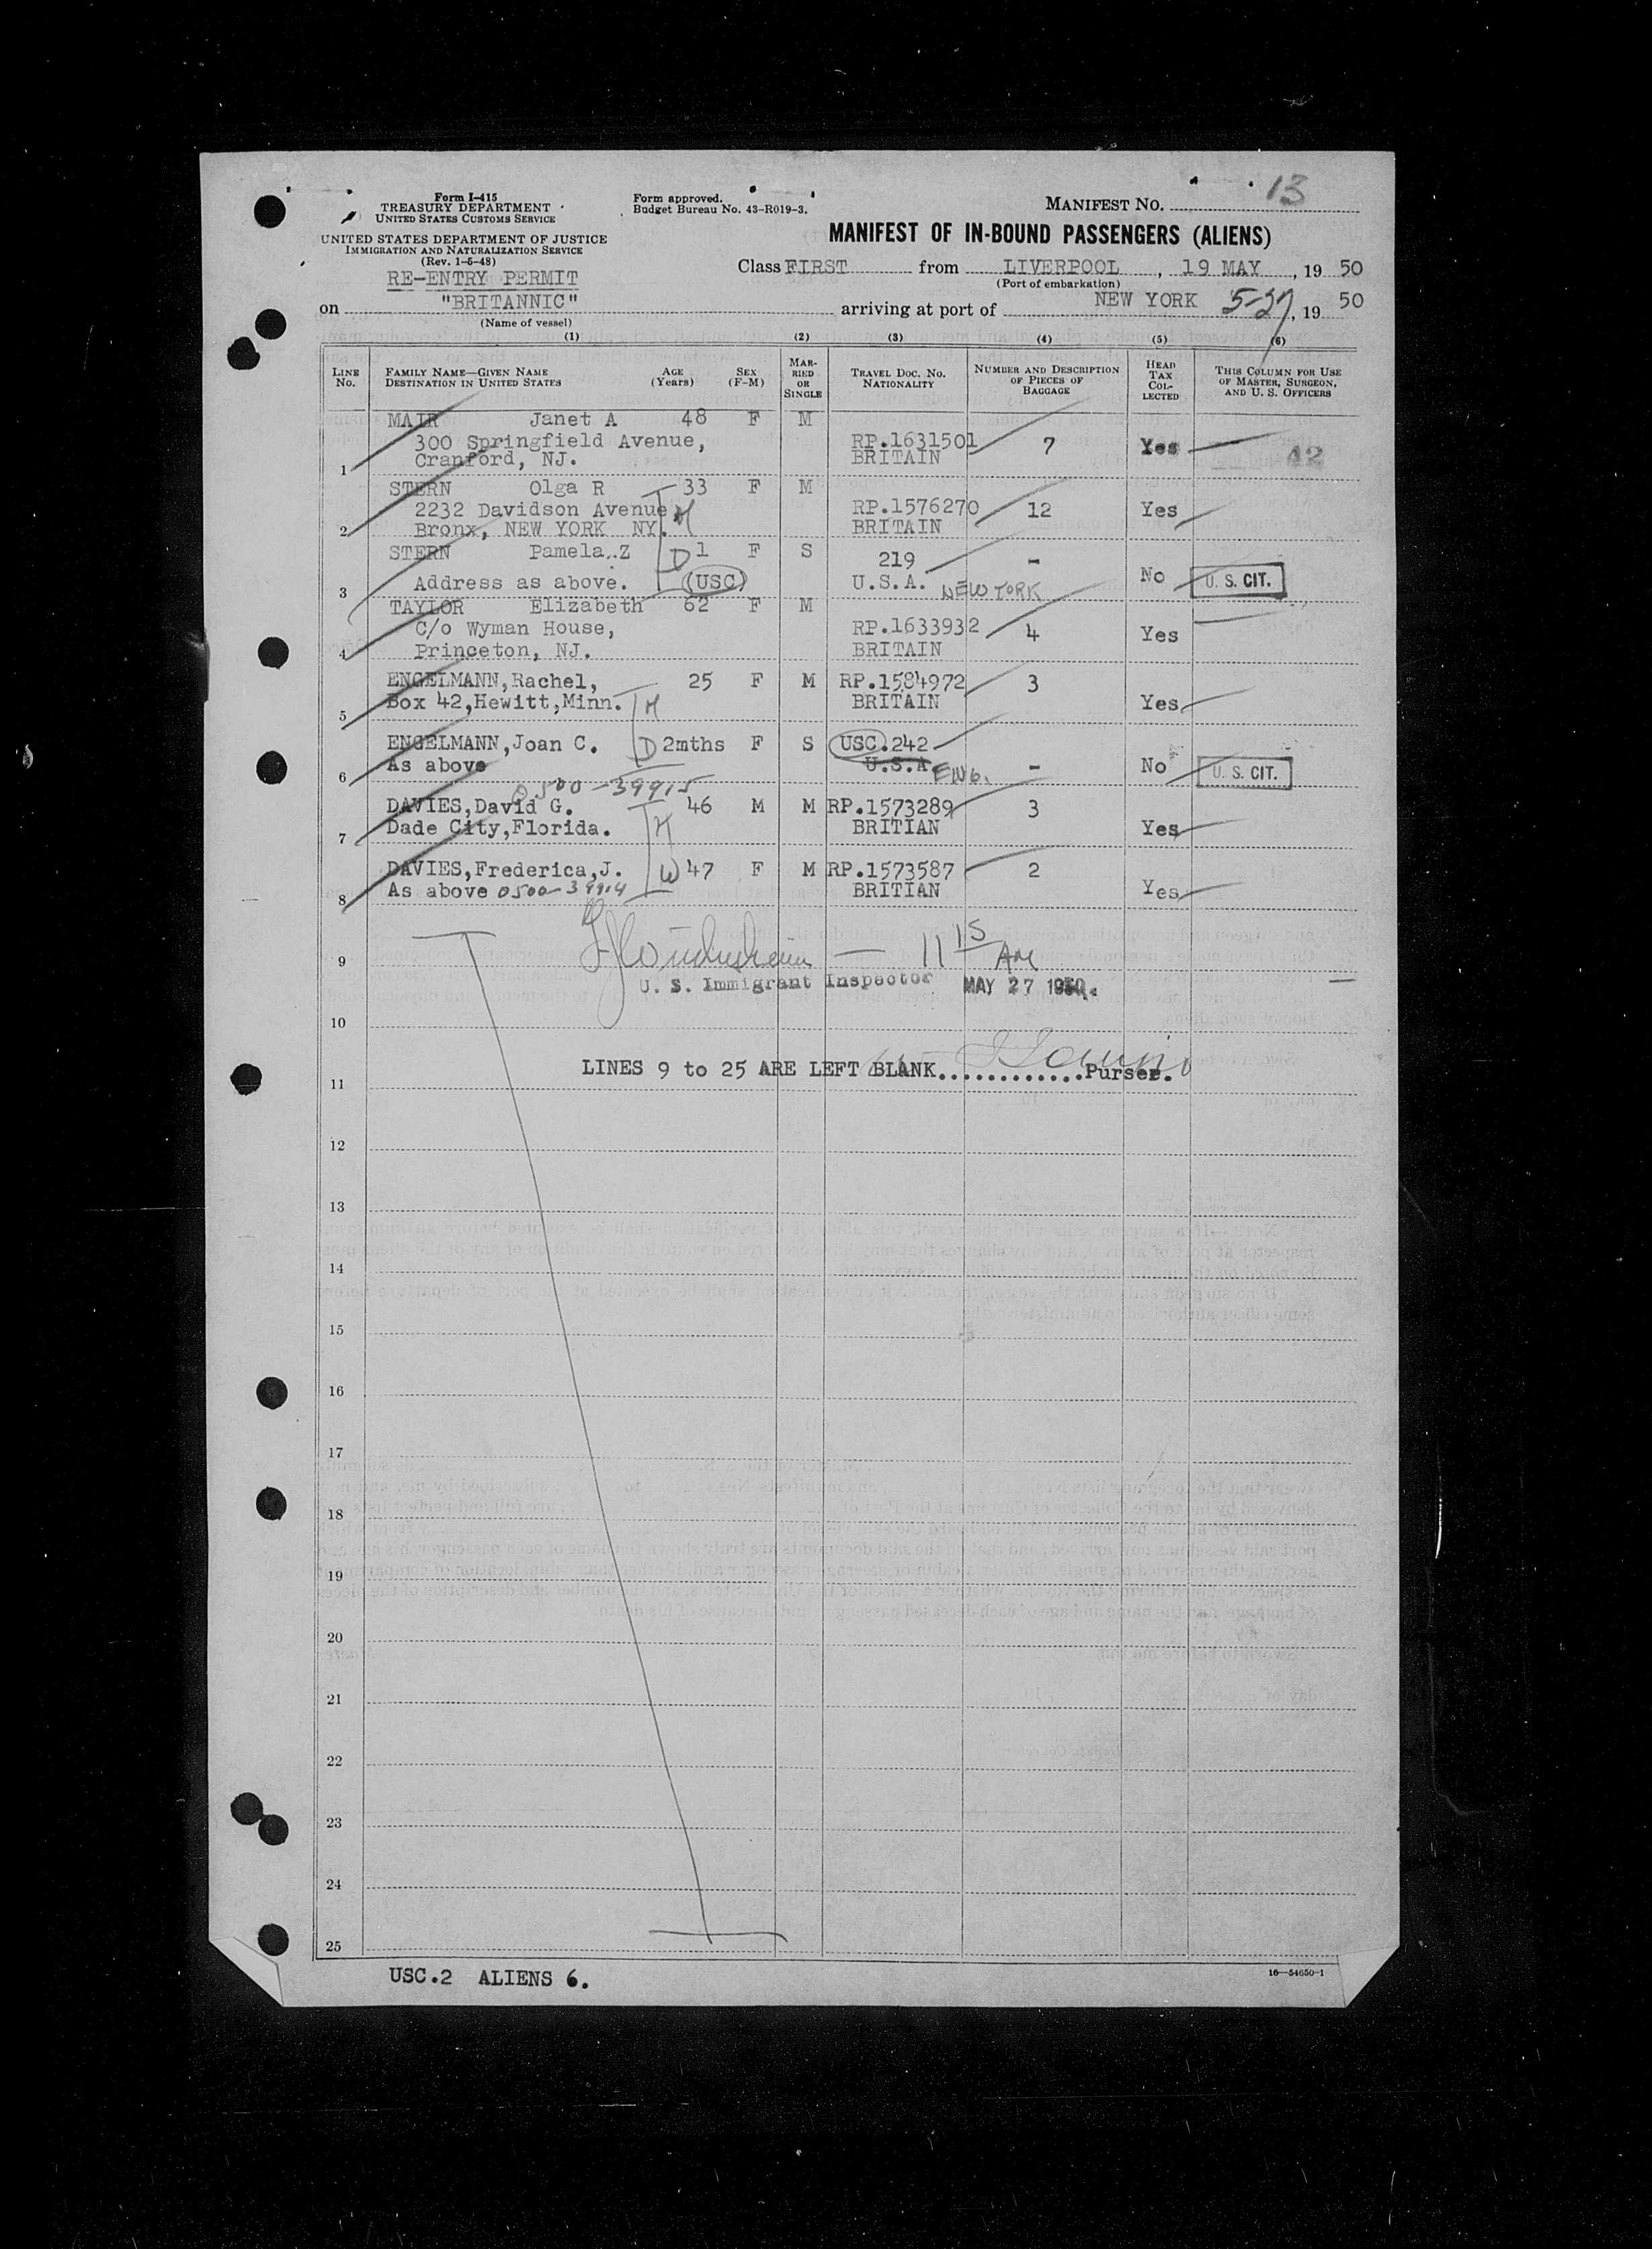 13
Form I-415
TREASURY DEPARTMENT
UNITED STATES CUSTOMS SERVICE
Form approved.
Budget Bureau No. 43-R019-3.
MANIFEST NO.
UNITED STATES DEPARTMENT OF JUSTICE
IMMIGRATION AND NATURALIZATION SERVICE
(Rev. 1-5-48)
MANIFEST OF IN-BOUND PASSENGERS (ALIENS)
RE-ENTRY PERMIT
Class FIRST from LIVERPOOL, 19 MAY, 19 50
(Port of embarkation)
on "BRITANNIC" arriving at port of NEW YORK 5-27, 19 50
(Name of vessel)
(1) (2) (3) (4) (5) (6)
LINE NO. FAMILY NAME—GIVEN NAME DESTINATION IN UNITED STATES AGE (Years) SEX (F-M) MARRIED OR SINGLE TRAVEL DOC. NO. NATIONALITY NUMBER AND DESCRIPTION OF PIECES OF BAGGAGE HEAD TAX COLLECTED THIS COLUMN FOR USE OF MASTER, SURGEON, AND U. S. OFFICERS
MAIR Janet A 48 F M
300 Springfield Avenue, RP.1631501 7 Yes 42
1 Cranford, NJ. BRITAIN
STERN Olga R 33 F M
2232 Davidson Avenue M RP.1576270 12 Yes
2 Bronx, NEW YORK NY. BRITAIN
STERN Pamela.Z D 1 F S 219 -
3 Address as above. (USC) U.S.A. NEW YORK No U. S. CIT.
TAYLOR Elizabeth 62 F M
C/o Wyman House, RP.1633932 4 Yes
4 Princeton, NJ. BRITAIN
ENGELMANN,Rachel, 25 F M RP.1584972 3
5 Box 42,Hewitt,Minn. M BRITAIN Yes
ENGELMANN,Joan C. D 2mths F S USC.242
6 As above U.S.A ENG. - No U. S. CIT.
0500-39915
DAVIES,David G. 46 M M RP.1573289 3
7 Dade City,Florida. H BRITIAN Yes
DAVIES,Frederica,J. W 47 F M RP.1573587 2
8 As above 0500-39914 BRITIAN Yes
9 — 11 15 AM
U. S. Immigrant Inspector MAY 27 1950
10
LINES 9 to 25 ARE LEFT BLANK.............Purser.
11
12
13
14
15
16
17
18
19
20
21
22
23
24
25
USC.2 ALIENS 6.
16—54650-1